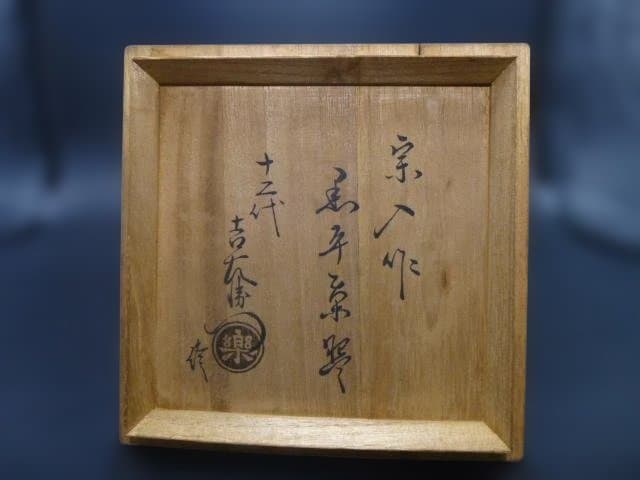 宗入作
黒平茶盌
十二代
吉左衛門
樂